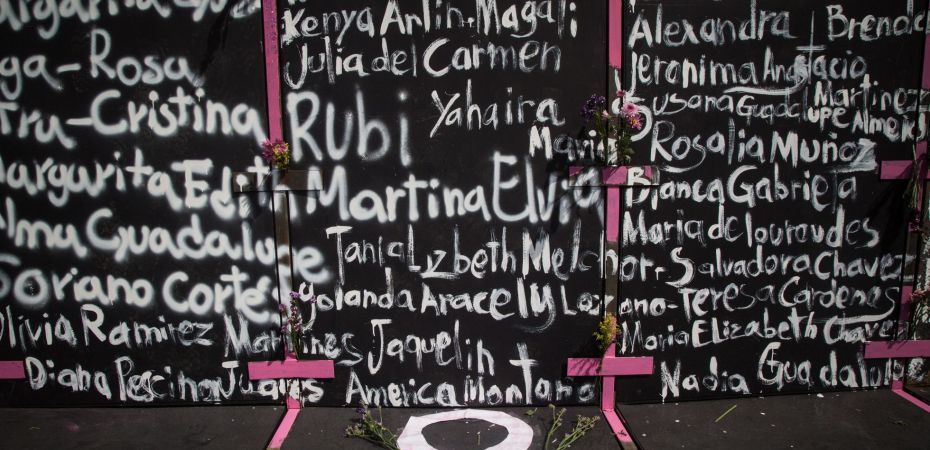 Margarita
Kenya Arlin. Magali
Alexandra Brenda
ga-Rosa
Julia del Carmen
Jeronima Anastacio
Tru-Cristina
Rubi
Yahaira
Susana Guadalupe Martinez
Almeks
Maria
Rosalia Muñoz
Margarita Edith Martina Elvia
Bianca Gabriela
Alma Guadalupe
Tania Lizbeth Melchor-
Maria de lourdes
Salvadora Chavez
Soriano Cortés
Yolanda Aracely Lozano-
Teresa Cardenes
Olivia Ramirez Martines
Jaquelin
Maria Elizabeth Chavez
Diana Pescina Juares
America Montano
Nadia Guadalupe